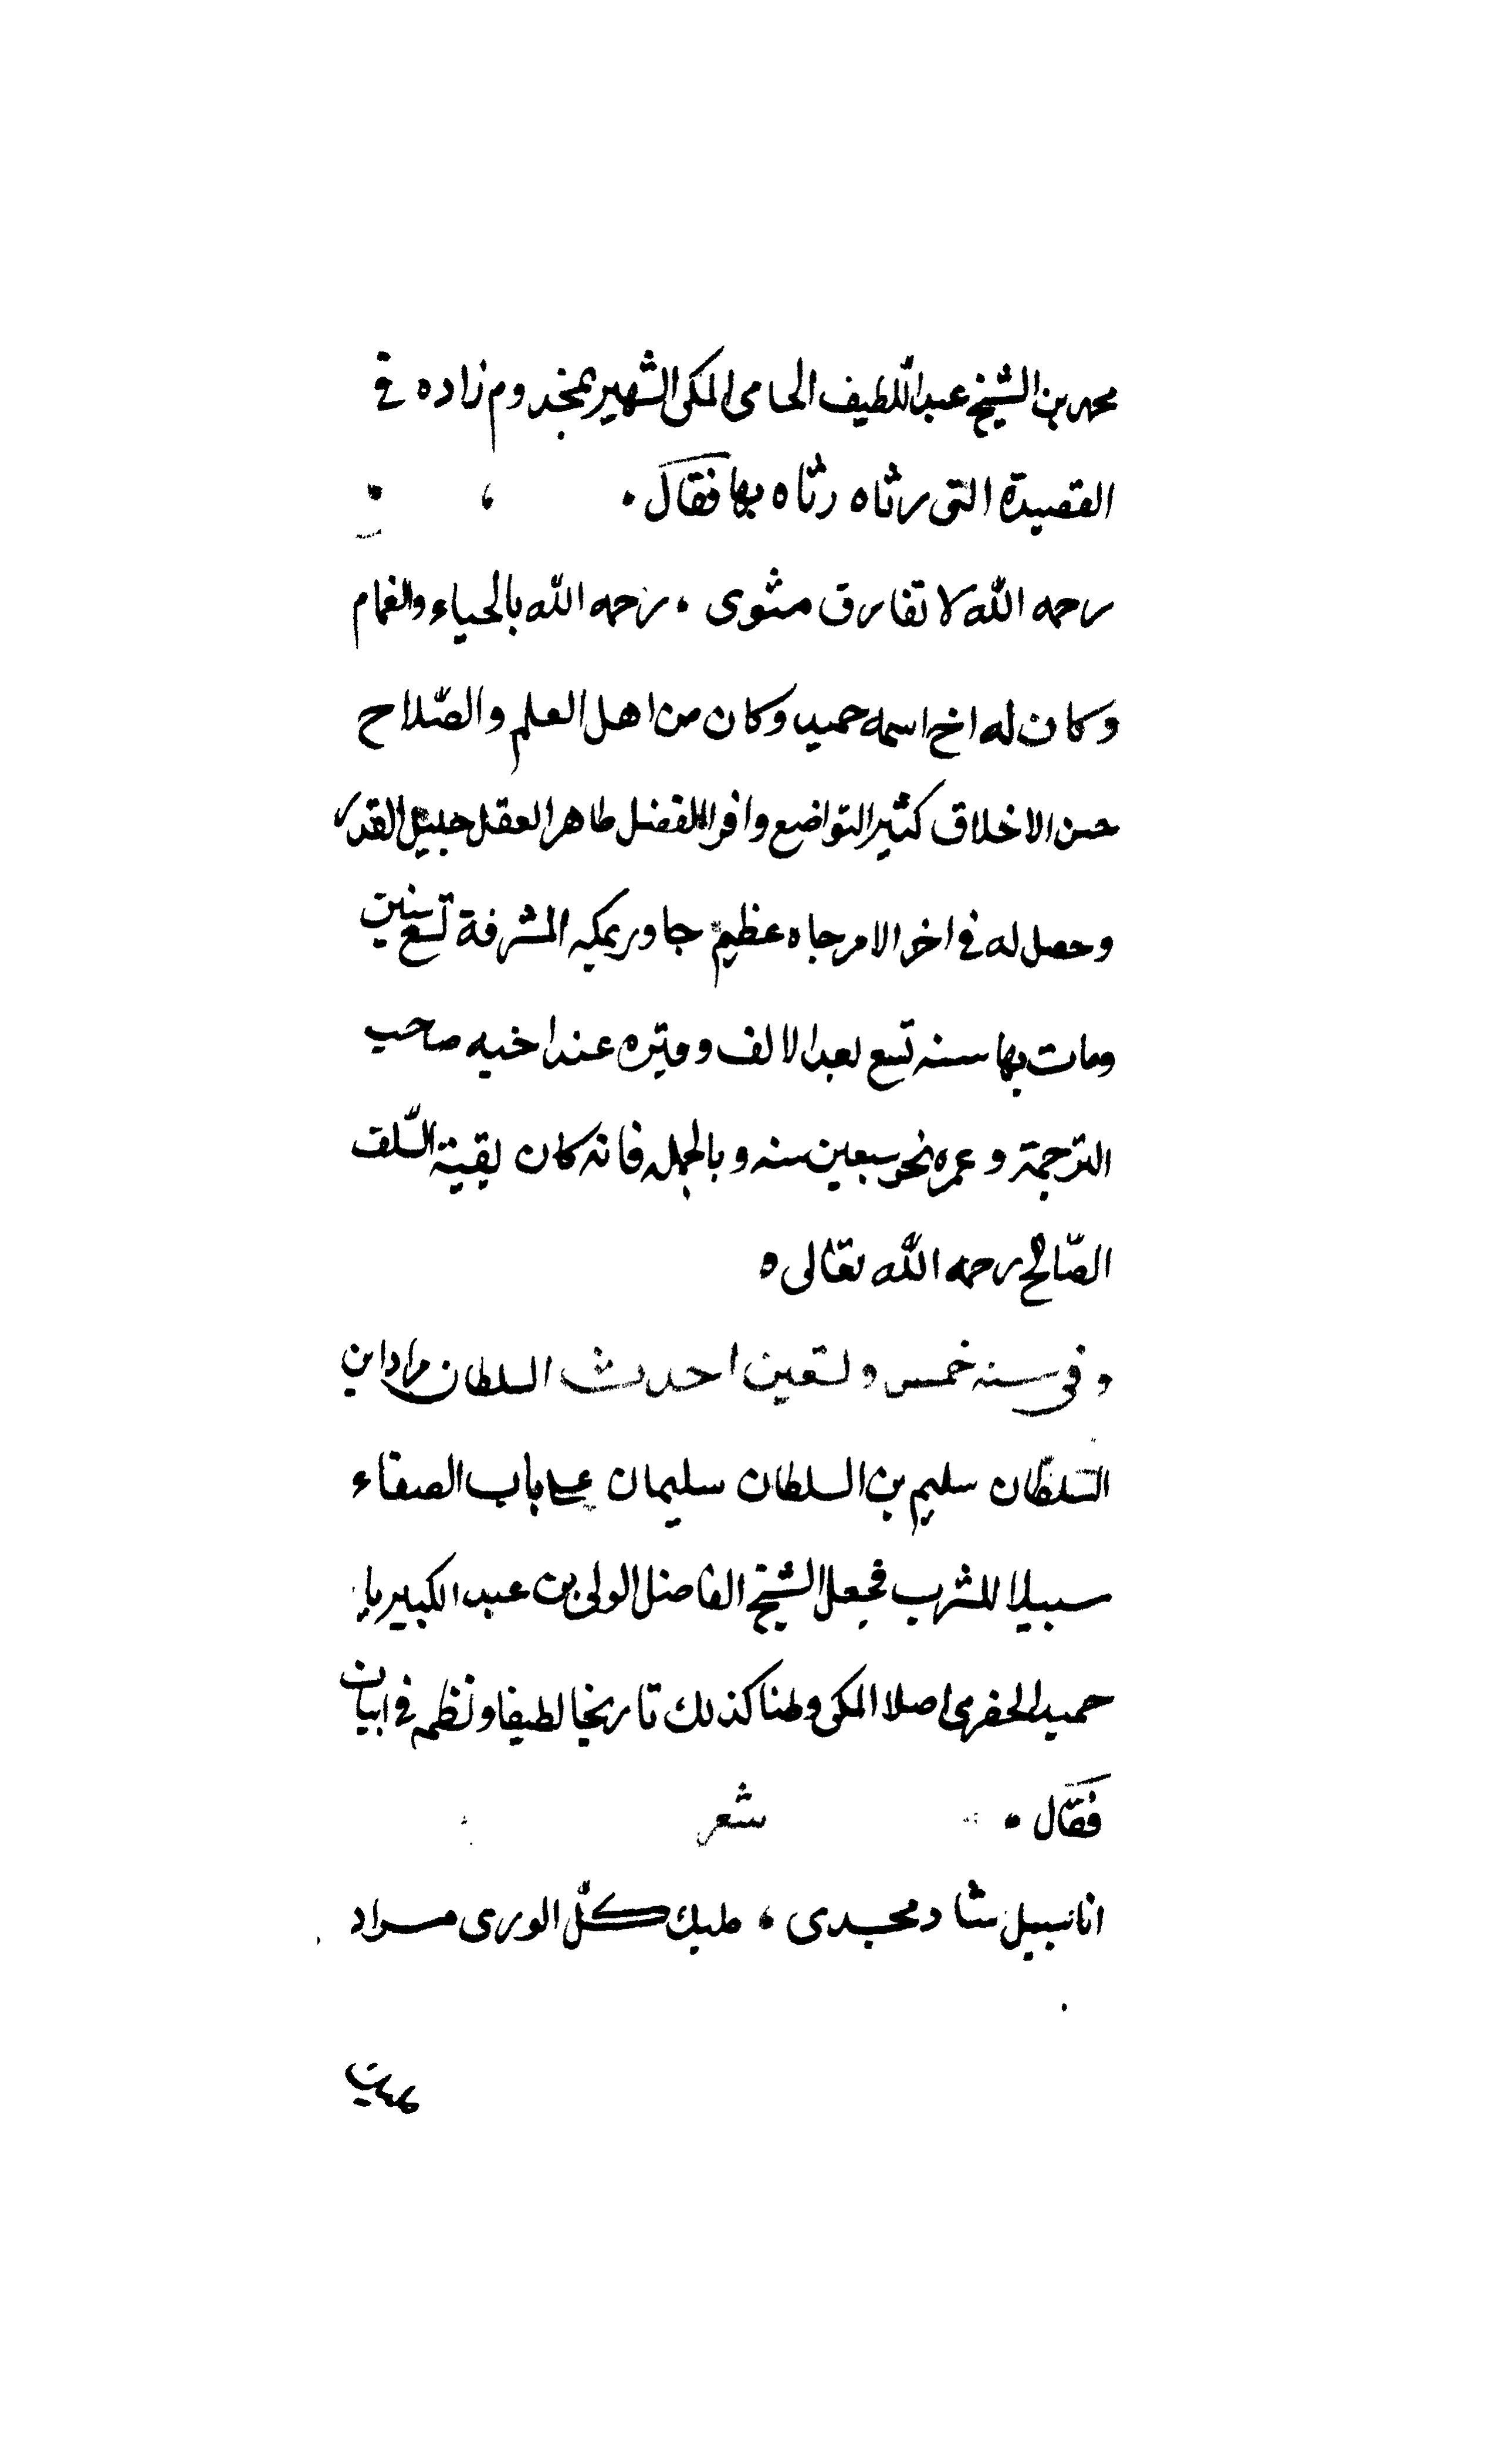 محمد بن الشيخ عبد اللطيف الحامى المكى الشهير بمخدوم زاده فى
القصيدة التى رثاه رثاه بها فقال
رحمه الله لا تفارق مثوى ، رحمه الله بالحياء والغمام
وكان له اخ اسمه حميد وكان من اهل العلم والصّلاح
حسن الاخلاق كثير التواضع وافر الفضل طاهر العقل جليل القدر
وحصل له فى اخر الامر جاه عظيم جاور بمكه المشرفة تسع سنين
ومات بها سنه تسع بعد الالف وقبره عند اخيه صاحب
الترجمة وعمره نحو سبعين سنه وبالجمله فانه كان بقية السّلف
الصّالح رحمه الله تعالى ه
وفى سنه خمس وتسعين احدث السلطان مراد ابن
السّلطان سليم بن السلطان سليمان على باب الصفاء
سبيلا للشرب فجعل الشيخ الفاضل الولى بن عبد الكبير با
حميد الحضرمى اصلا المكى وطنا كذلك تاريخا لطيفا ونظمه فى ابيات
فقال
شعر
انا سبيل شاد مجدى ، مليك كلّ الورى مراد